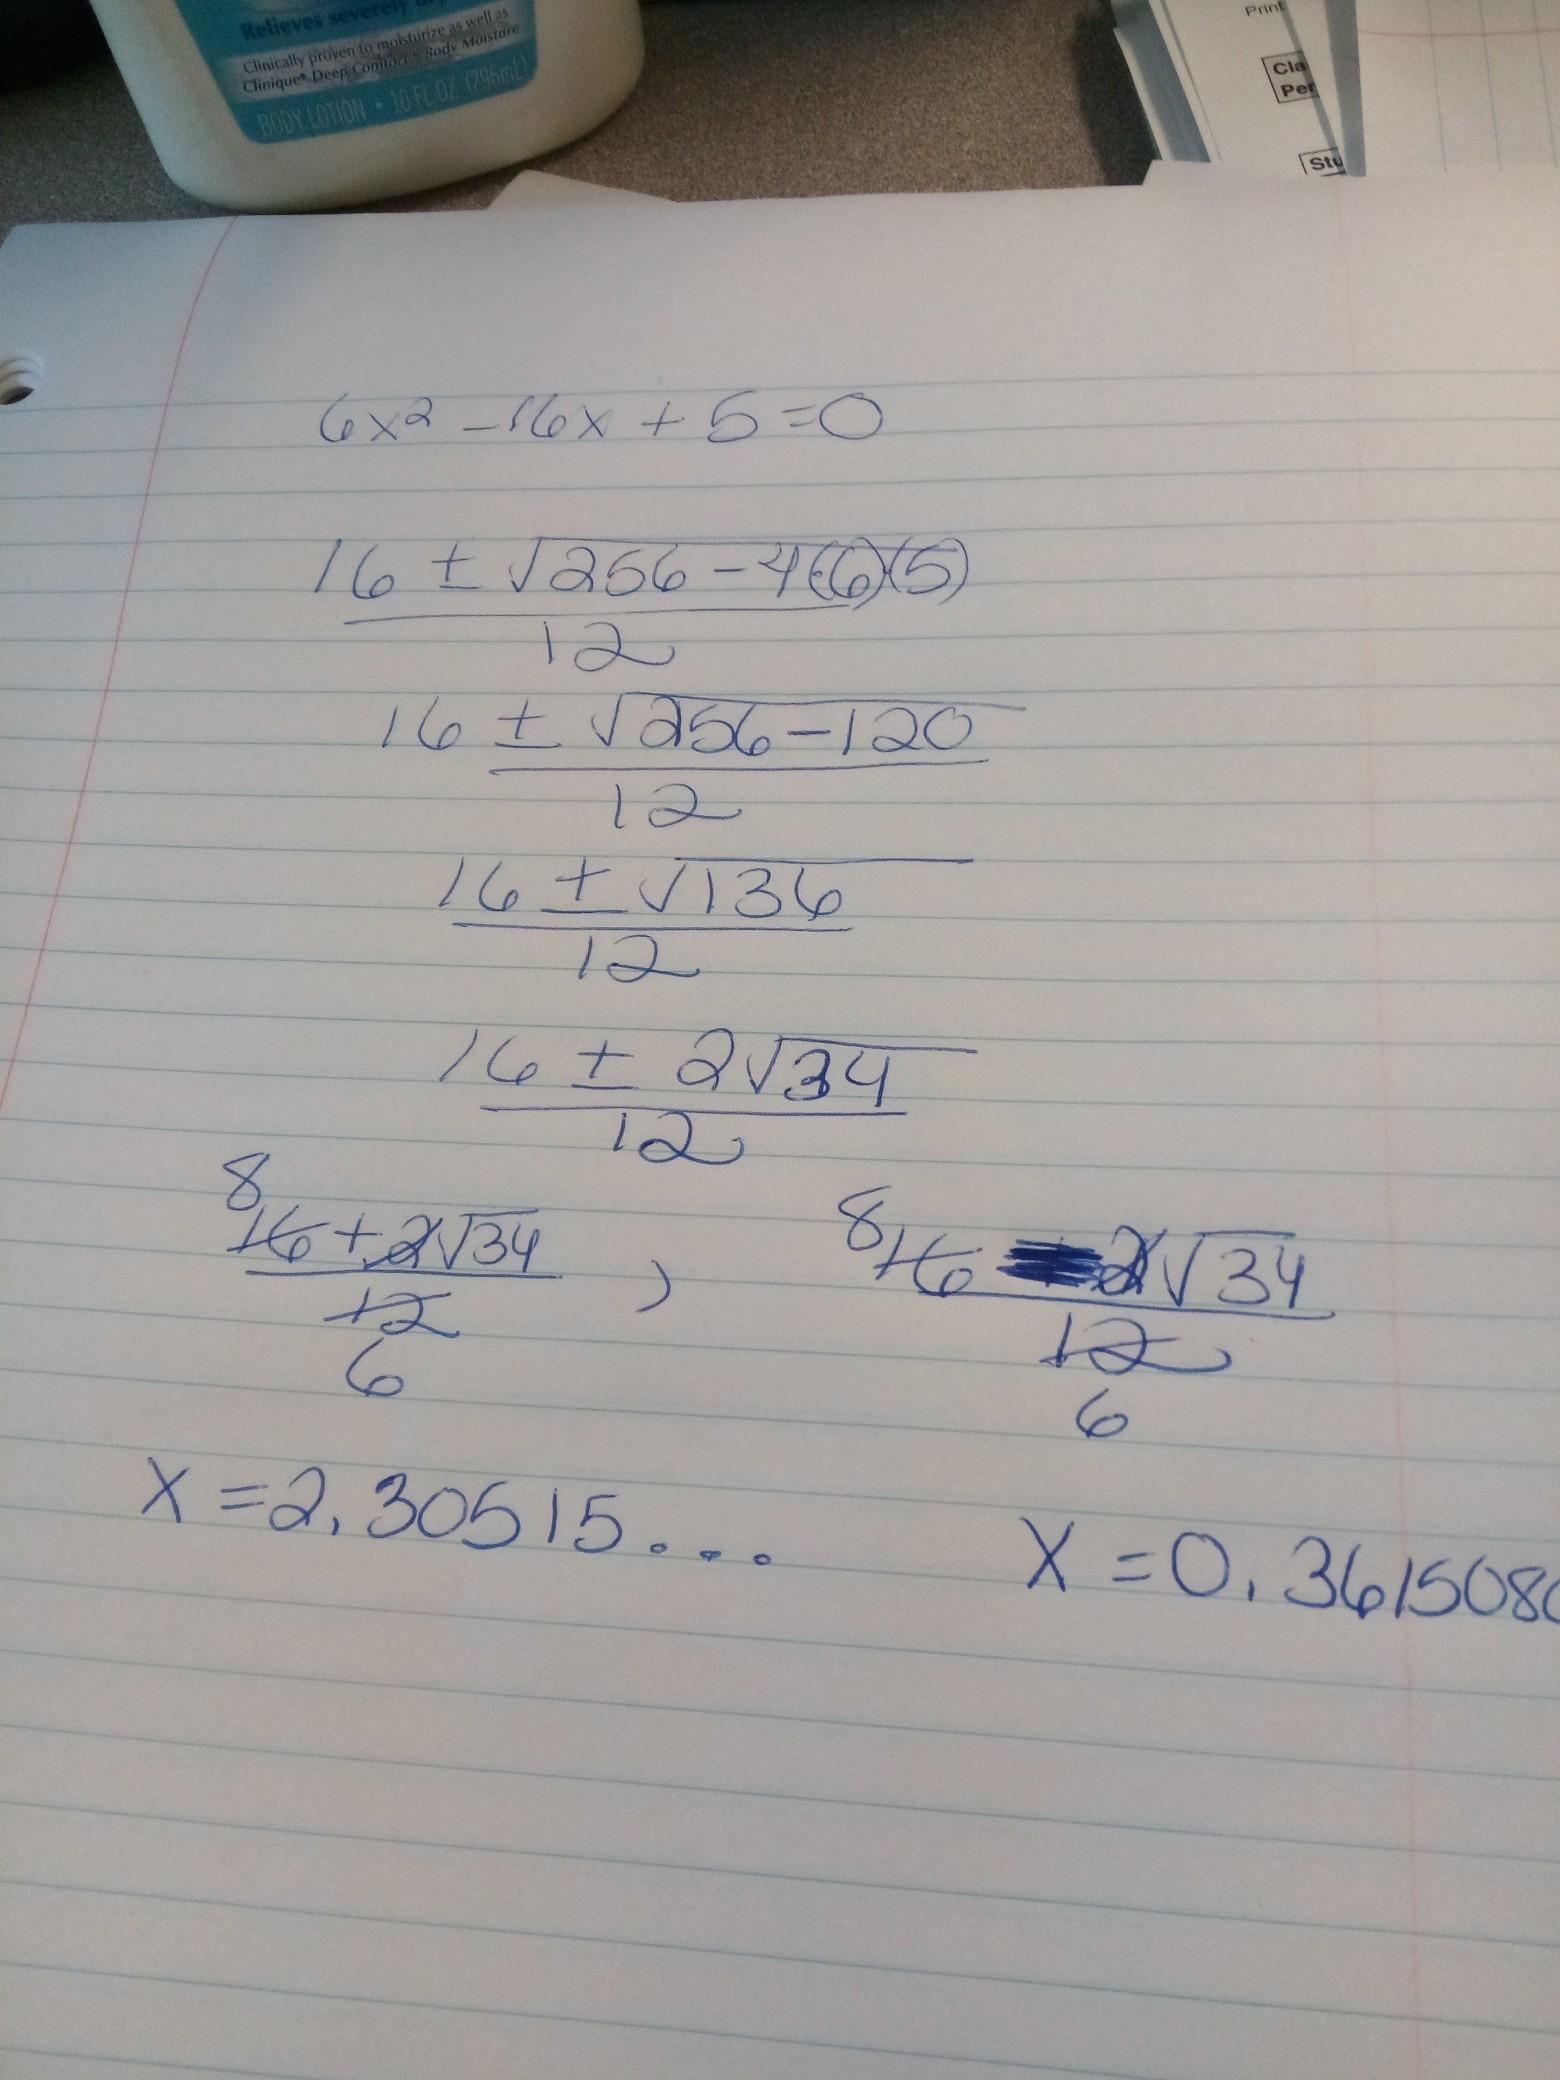 Relieves severely
Clinically proven to moisturize as well as
Clinique® Deep Comfort™ Body Moisture
BODY LOTION • 10 FL OZ (296mL)
Print
Cla
Per
Stu
6x² -16x + 5 = 0
16 ± √256 - 4(6)(5)
12
16 ± √256 - 120
12
16 ± √136
12
16 ± 2√34
12
8
16 + 2√34
12
6
,
8
16 - 2√34
12
6
x = 2.30515...
x = 0.3615080